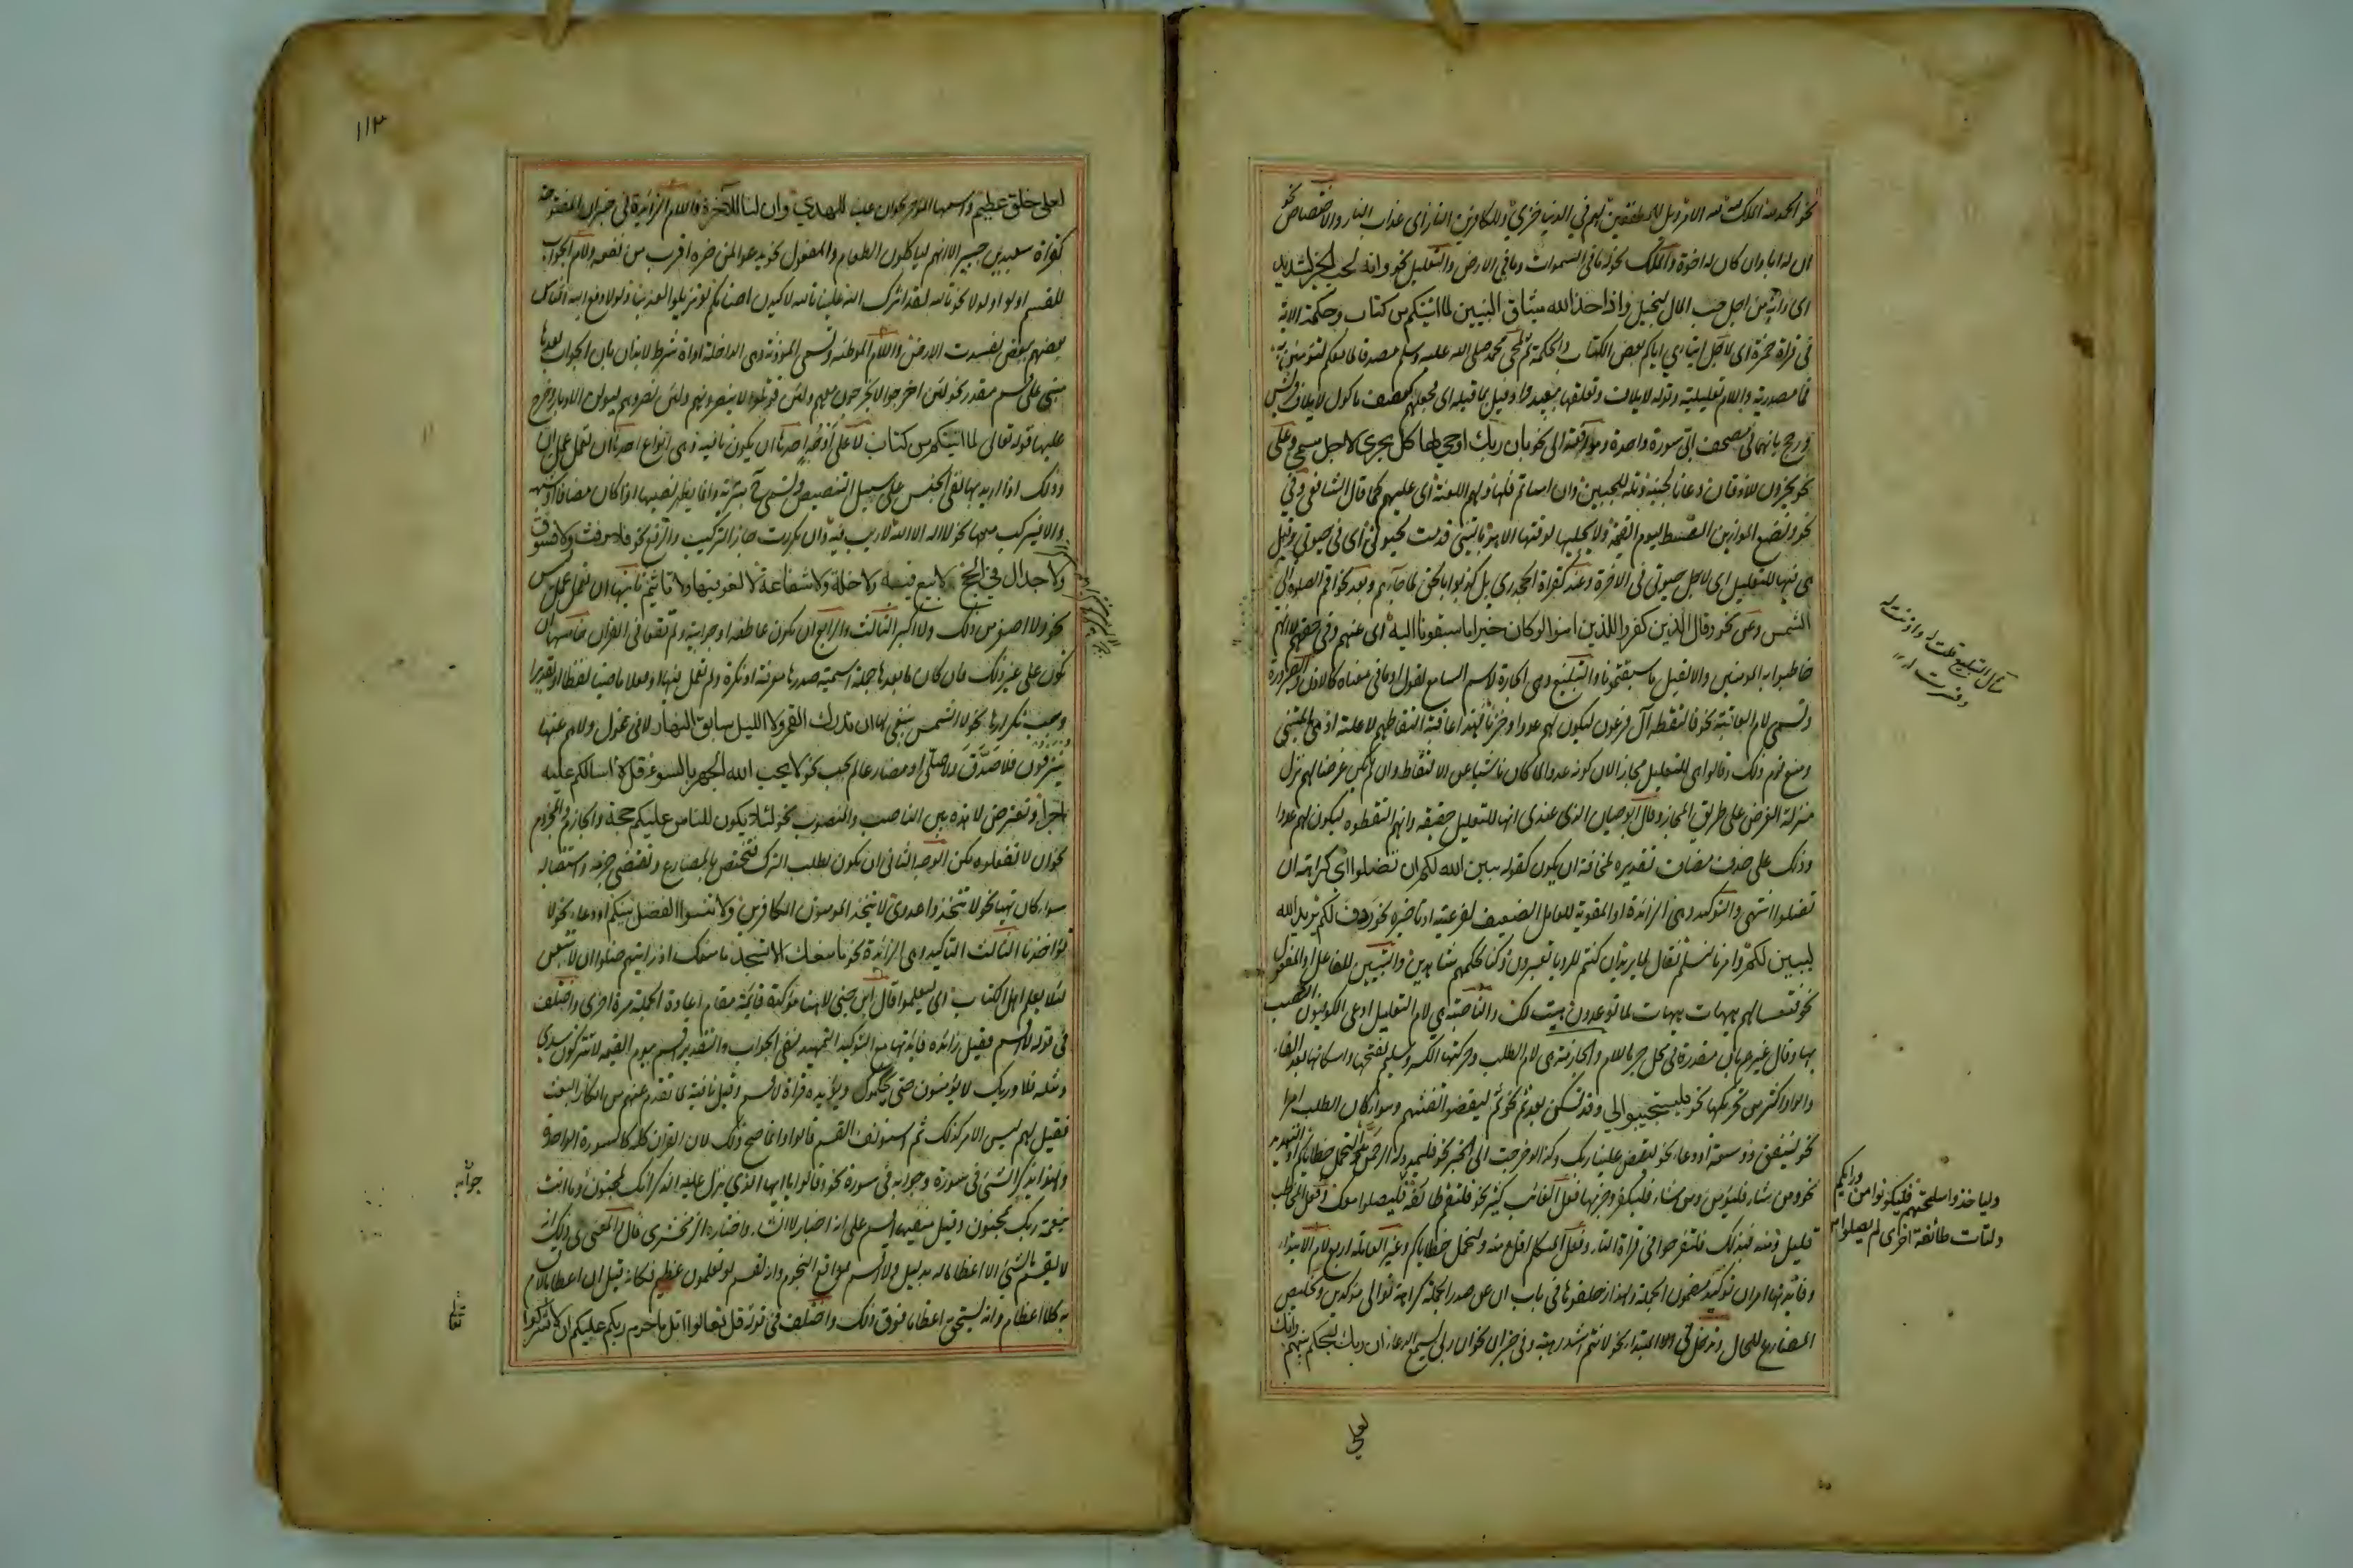 نحو الحمد لله الملك لله لله الامر ويل للمطففين لهم في الدنيا خزي وللكافرين النار اى عذاب النار والاختصاص نحو
ان له ابا وان كان له اخوة والملك نحو له ما في السموات وما في الارض والتعليل نحو وانه لحب الخير لشديد
اى وانه من اجل حب المال لبخيل واذ اخذ الله ميثاق النبيين لما اتيتكم من كتاب وحكمة الاية
في قراة حمزة اى لاجل ايتاءي اياكم بعض الكتاب والحكمة ثم لمجئ محمد صلى الله عليه وسلم مصدق لما معكم لتؤمنن به
فما مصدرية واللام تعليلية وقوله لايلاف وتعلقها بيعبدوا وقيل بما قبله اى فجعلهم كعصف ماكول لايلاف قريش
ورجح بانهما في مصحف ابيّ سورة واحدة وموافقة الى نحو بان ربك اوحى لها كل يجري لاجل مسمى وعلى
نحو يخرون للاذقان دعانا لجنبه وتله للجبين وان اساتم فلها ولهم اللعنة اى عليهم كما قال الشافعى وفي
نحو ونضع الموازين القسط ليوم القيمة لا يجليها لوقتها الا هو يا ليتني قدمت لحيوتي اى في حيوتي وقيل
هي فيها للتعليل اى لاجل حيوتي في الاخرة وعند كقراة الجحدري بل كذبوا بالحق لما جاءهم وبعد نحو اقم الصلوة لدلوك
الشمس وعن نحو وقال الذين كفروا للذين امنوا لو كان خيرا ما سبقونا اليه اى عنهم وفي حقهم لا انهم
خاطبوا به المومنين والا لقيل ما سبقتمونا والتبليغ وهي الجارة لاسم السامع لقول او ما في معناه كالاذن والصيرورة
وتسمى لام العاقبة نحو فالتقطه آل فرعون ليكون لهم عدوا وحزنا فهذا عاقبة التقاطهم لا علته اذ هي التبني
ومنع قوم ذلك وقالوا هي للتعليل مجازا لان كونه عدوا لما كان ناشيا عن الالتقاط وان لم يكن غرضا لهم نزل
منزلة الغرض على طريق المجاز وقال ابو حيان الذي عندي انها للتعليل حقيقة وانهم التقطوه ليكون لهم عدوا
وذلك على حذف مضاف تقديره لمخافة ان يكون كقوله يبين الله لكم ان تضلوا اى كراهة ان
تضلوا انتهى والتوكيد وهي الزائدة او المقوية للعامل الضعيف لفرعيته او تاخيره نحو ردف لكم يريد الله
ليبين لكم وامرنا لنسلم فعال لما يريد ان كنتم للرويا تعبرون وكنا لحكمهم شاهدين والتبيين للفاعل او المفعول
نحو فتعسا لهم هيهات هيهات لما توعدون هيت لك والناصبة هي لام التعليل ادعى الكوفيون النصب
بها وقال غيرهم بان مقدرة في محل جر باللام والجازمة هي لام الطلب وحركتها الكسر وسليم تفتحها واسكانها بعد الفاء
والواو اكثر من تحريكها نحو فليستجيبوا لي وقد تسكن بعد ثم نحو ثم ليقضوا تفثهم وسواء كان الطلب امرا
نحو لينفق ذو سعة او دعاء نحو ليقض علينا ربك وكذا لو خرجت الى الخبر نحو فليمدد له الرحمن ولنحمل خطاياكم او التهديد
نحو ومن شاء فليؤمن ومن شاء فليكفر وجزمها فعل الغائب كثير نحو فلتقم طائفة فليصلوا معك وفعل المخاطب
قليل ومنه فبذلك فلتفرحوا في قراة التاء وفعل المتكلم اقل ومنه ولنحمل خطاياكم وغير العاملة اربع لام الابتداء
وفائدتها امران توكيد مضمون الجملة ولهذا زحلقوها في باب ان عن صدر الجملة كراهة توالى مؤكدين وتخليص
المضارع للحال وتدخل في المبتدا نحو لانتم اشد رهبة وفي خبر ان نحو ان ربي لسميع الدعاء ان ربك ليحكم بينهم وانك
وليأخذوا اسلحتهم فليكونوا من ورائكم
ولتات طائفة اخرى لم يصلوا
لعلى
١١٣
لعلى خلق عظيم واسمها المؤخر نحو ان علينا للهدي وان لنا للآخرة واللام الزائدة في خبر ان المفتوحة
كقراة سعيد بن جبير الا انهم لياكلون الطعام والمفعول نحو يدعوا لمن ضره اقرب من نفعه ولام الجواب
للقسم او لو او لولا نحو تالله لقد اثرك الله علينا تالله لاكيدن اصنامكم لو تزيلوا لعذبنا ولولا دفع الله الناس
بعضهم ببعض لفسدت الارض واللام الموطئة وتسمى المؤذنة وهي الداخلة على اداة شرط للايذان بان الجواب بعدها
مبني على قسم مقدر نحو لئن اخرجوا لا يخرجون معهم ولئن قوتلوا لا ينصرونهم ولئن نصروهم ليولن الادبار وخرج
عليها قوله تعالى لما اتيتكم من كتاب لا على اوجه احدها ان يكون نافية وهي انواع احدها ان تعمل عمل ان
وذلك اذا اريد بها نفي الجنس على سبيل التنصيص وتسمى ح تبرئة وانما يظهر نصبها اذا كان مضافا او شبهه
والا فيركب معها نحو لا اله الا الله لا ريب فيه وان تكررت جاز التركيب والرفع نحو فلا رفث ولا فسوق
ولا جدال في الحج لا بيع فيه ولا خلة ولا شفاعة لا لغو فيها ولا تاثيم ثانيها ان تعمل عمل ليس
نحو ولا اصغر من ذلك ولا اكبر الثالث والرابع ان يكون عاطفة او جوابية ولم تقعا في القران خامسها ان
تكون على غير ذلك فان كان ما بعدها جملة اسمية صدرها معرفة او نكرة ولم تعمل فيها او فعلا ماضيا لفظا او تقديرا
وجب تكرارها نحو لا الشمس ينبغي لها ان تدرك القمر ولا الليل سابق النهار لا فيها غول ولا هم عنها
ينزفون فلا صدق ولا صلى او مضارعا لم يجب نحو لا يحب الله الجهر بالسوء قل لا اسالكم عليه
اجرا وتعترض لا هذه بين الناصب والمنصوب نحو لئلا يكون للناس عليكم حجة والجازم والمجزوم
نحو ان لا تفعلوه تكن الوجه الثانى ان تكون لطلب الترك فتختص بالمضارع وتقتضى جزمه واستقباله
سواء كان نهيا نحو لا تتخذوا عدوى لا يتخذ المومنون الكافرين ولا تنسوا الفضل بينكم او دعاء نحو لا
تؤاخذنا الثالث التاكيد وهي الزائدة نحو ما منعك الا تسجد ما منعك اذ رايتهم ضلوا ان لا تتبعن
لئلا يعلم اهل الكتاب اى ليعلموا قال ابن جني لا هنا مؤكدة قائمة مقام اعادة الجملة مرة اخرى واختلف
في قوله لا اقسم فقيل زائدة فائدتها مع التوكيد التمهيد لنفى الجواب والتقدير لا اقسم بيوم القيمة لا يتركون سدى
ومثله فلا وربك لا يؤمنون حتى يحكموك ويؤيده قراة لاقسم وقيل نافية لما تقدم عنهم من انكار البعث
فقيل لهم ليس الامر كذلك ثم استونف القسم قالوا وانما صح ذلك لان القران كله كالسورة الواحدة
ولهذا يذكر الشئ في سورة وجوابه في سورة نحو وقالوا يا ايها الذي نزل عليه الذكر انك لمجنون وما انت
بنعمة ربك بمجنون وقيل منفيها اقسم على انه اخبار لا انشاء واختاره الزمخشرى قال والمعنى في ذلك انه
لا يقسم بالشئ الا اعظاما له بدليل فلا اقسم بمواقع النجوم وانه لقسم لو تعلمون عظيم فكانه قيل ان اعظامه بالاقسام
به كلا اعظام وانه يستحق اعظاما فوق ذلك واختلف في قوله قل تعالوا اتل ما حرم ربكم عليكم ان لا تشركوا
جوابه